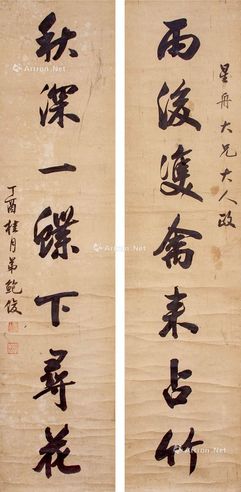 星舟大兄大人政
雨後雙禽来占竹
秋深一蝶下尋花
丁酉桂月弟鮑俊
Artron.Net
Artron.Net
Artron.Net
Artron.Net